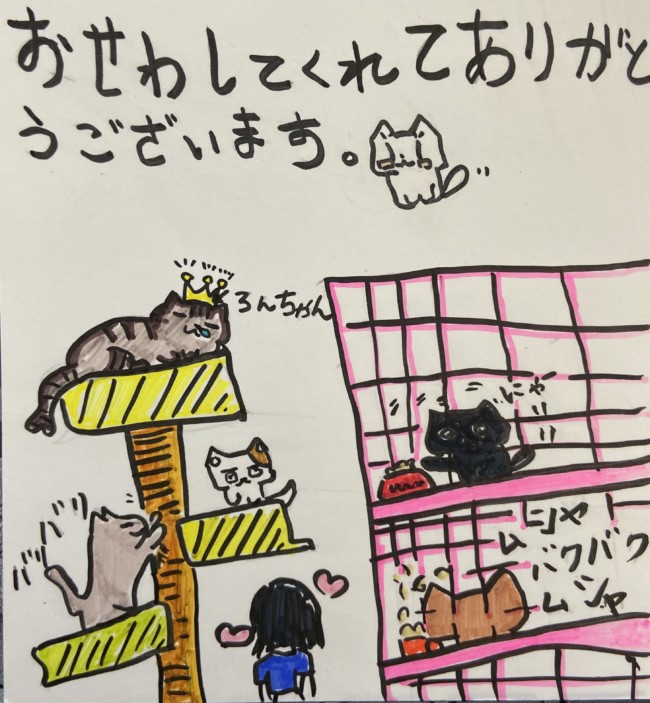 おせわしてくれてありがと
うございます。
ろんちゃん
にゃ
ニャ
ム
バクバク
ムシャ
バリ
バリ